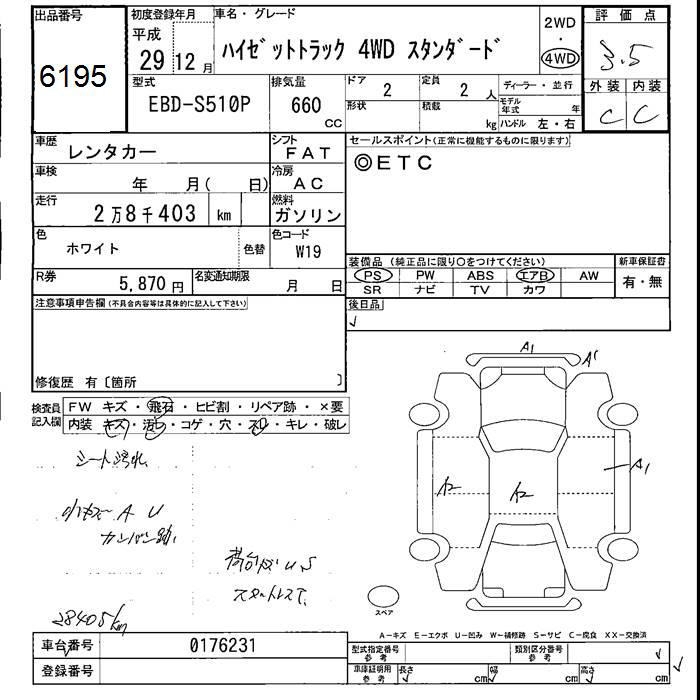 出品番号
6195
初度登録年月
平成
29 12 月
車名・グレード
ハイゼットトラック 4WD スタンダード
2WD
・
4WD
評価点
3.5
外装 内装
C C
型式
EBD-S510P
排気量
660
CC
ドア
2
定員
2 人
形状
積載
kg
ディーラー・並行
モデル年式
年
ハンドル 左・右
車歴
レンタカー
シフト
FAT
車検
年 月( 日)
冷房
AC
走行
2万8千403 km
燃料
ガソリン
色
ホワイト
色替
色コード
W19
R券
5,870 円
名変通知期限
月 日
セールスポイント(正常に機能するものに限ります)
◎ETC
装備品 (純正品に限り○をつけてください)
新車保証書
PS PW ABS エアB AW
SR ナビ TV カワ
有・無
後日品
√
注意事項申告欄(不具合内容等は具体的に記入して下さい)
修復歴 有〔箇所 〕
検査員記入欄
FW キズ・飛石・ヒビ割・リペア跡・×要
内装 キズ・汚レ・コゲ・穴・スレ・キレ・破レ
シート汚れ
小キズ A U
カンバン跡
荷台キズ U, S
28405km
A1 A1
A2 A2 A1
スペア
A-キズ E-エクボ U-凹み W-補修跡 S-サビ C-腐食 XX-交換済
車台番号
0176231
登録番号
型式指定番号
参考
類別区分番号
参考
車庫証明用
参考
長さ cm
幅 cm
高さ cm